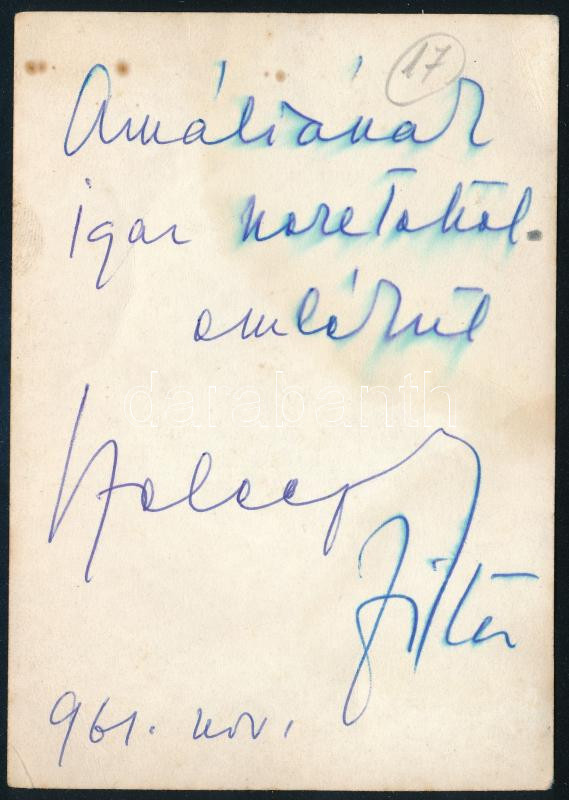 17
Amáliának
igaz szeretettel
emlékül
darabanth
Zita
961. nov.